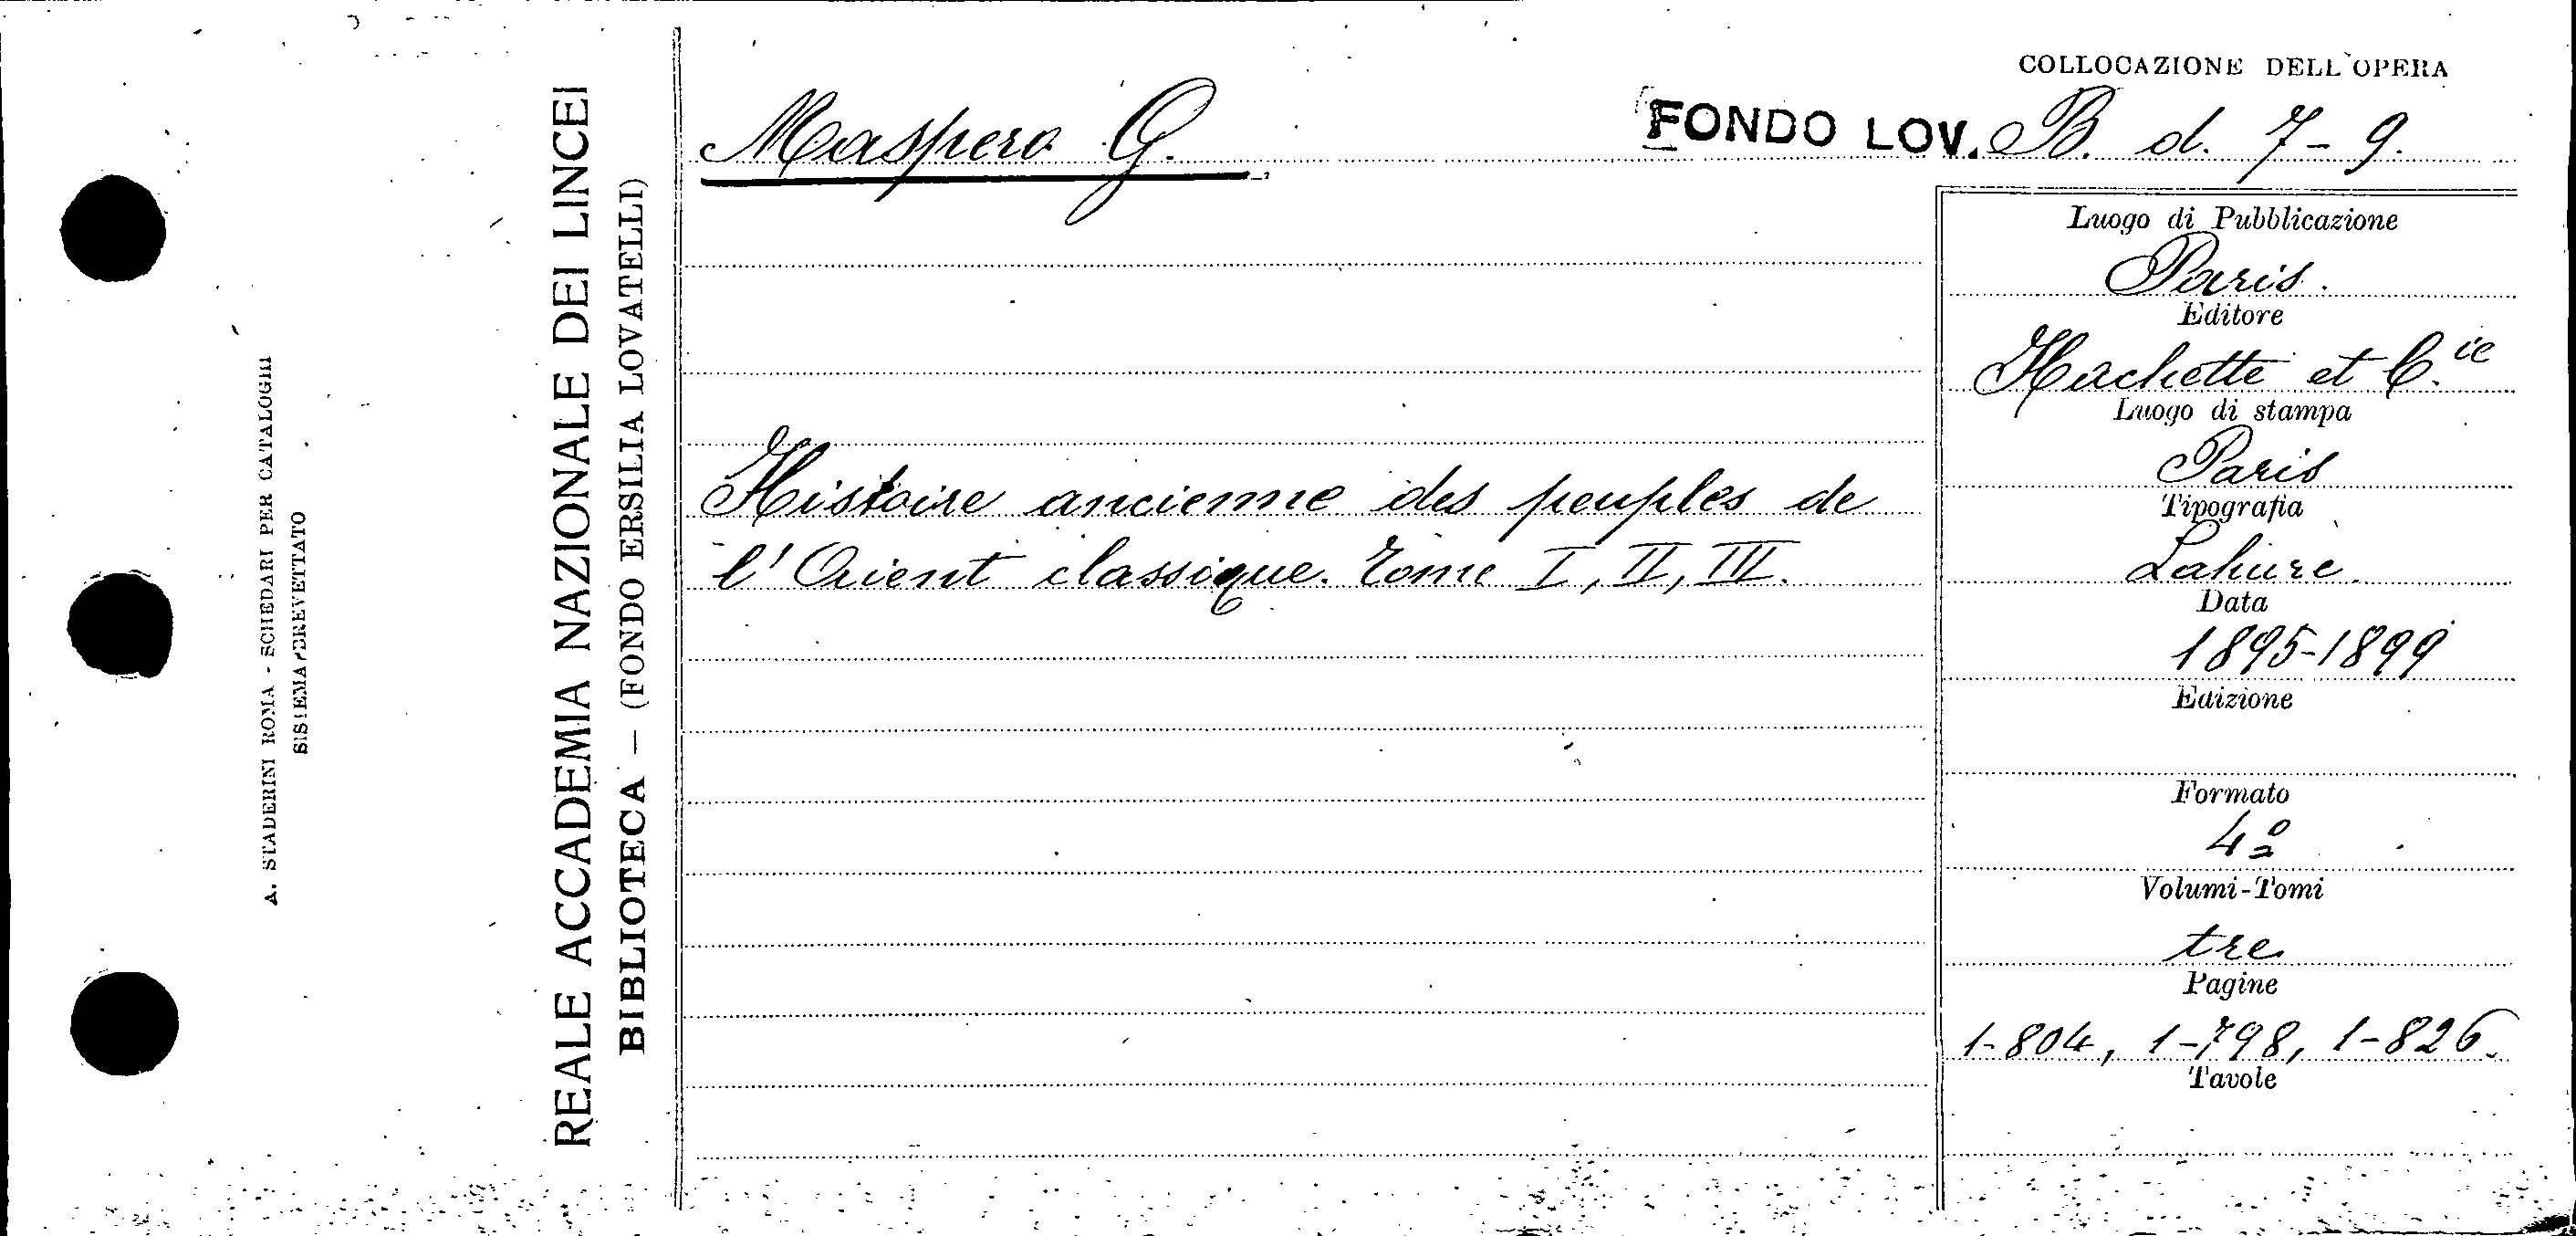 A. STADERINI ROMA - SCHEDARI PER CATALOGHI
SISTEMA BREVETTATO
REALE ACCADEMIA NAZIONALE DEI LINCEI
BIBLIOTECA — (FONDO ERSILIA LOVATELLI)
COLLOCAZIONE DELL'OPERA
Maspero G.
FONDO LOV. B. d. 7-9.
Histoire ancienne des peuples de
l'Orient classique. Tome I, II, III.
Luogo di Pubblicazione
Paris.
Editore
Hachette et C.ie
Luogo di stampa
Paris
Tipografia
Lahure.
Data
1895-1899
Edizione
Formato
4º
Volumi-Tomi
tre
Pagine
1-804, 1-798, 1-826.
Tavole